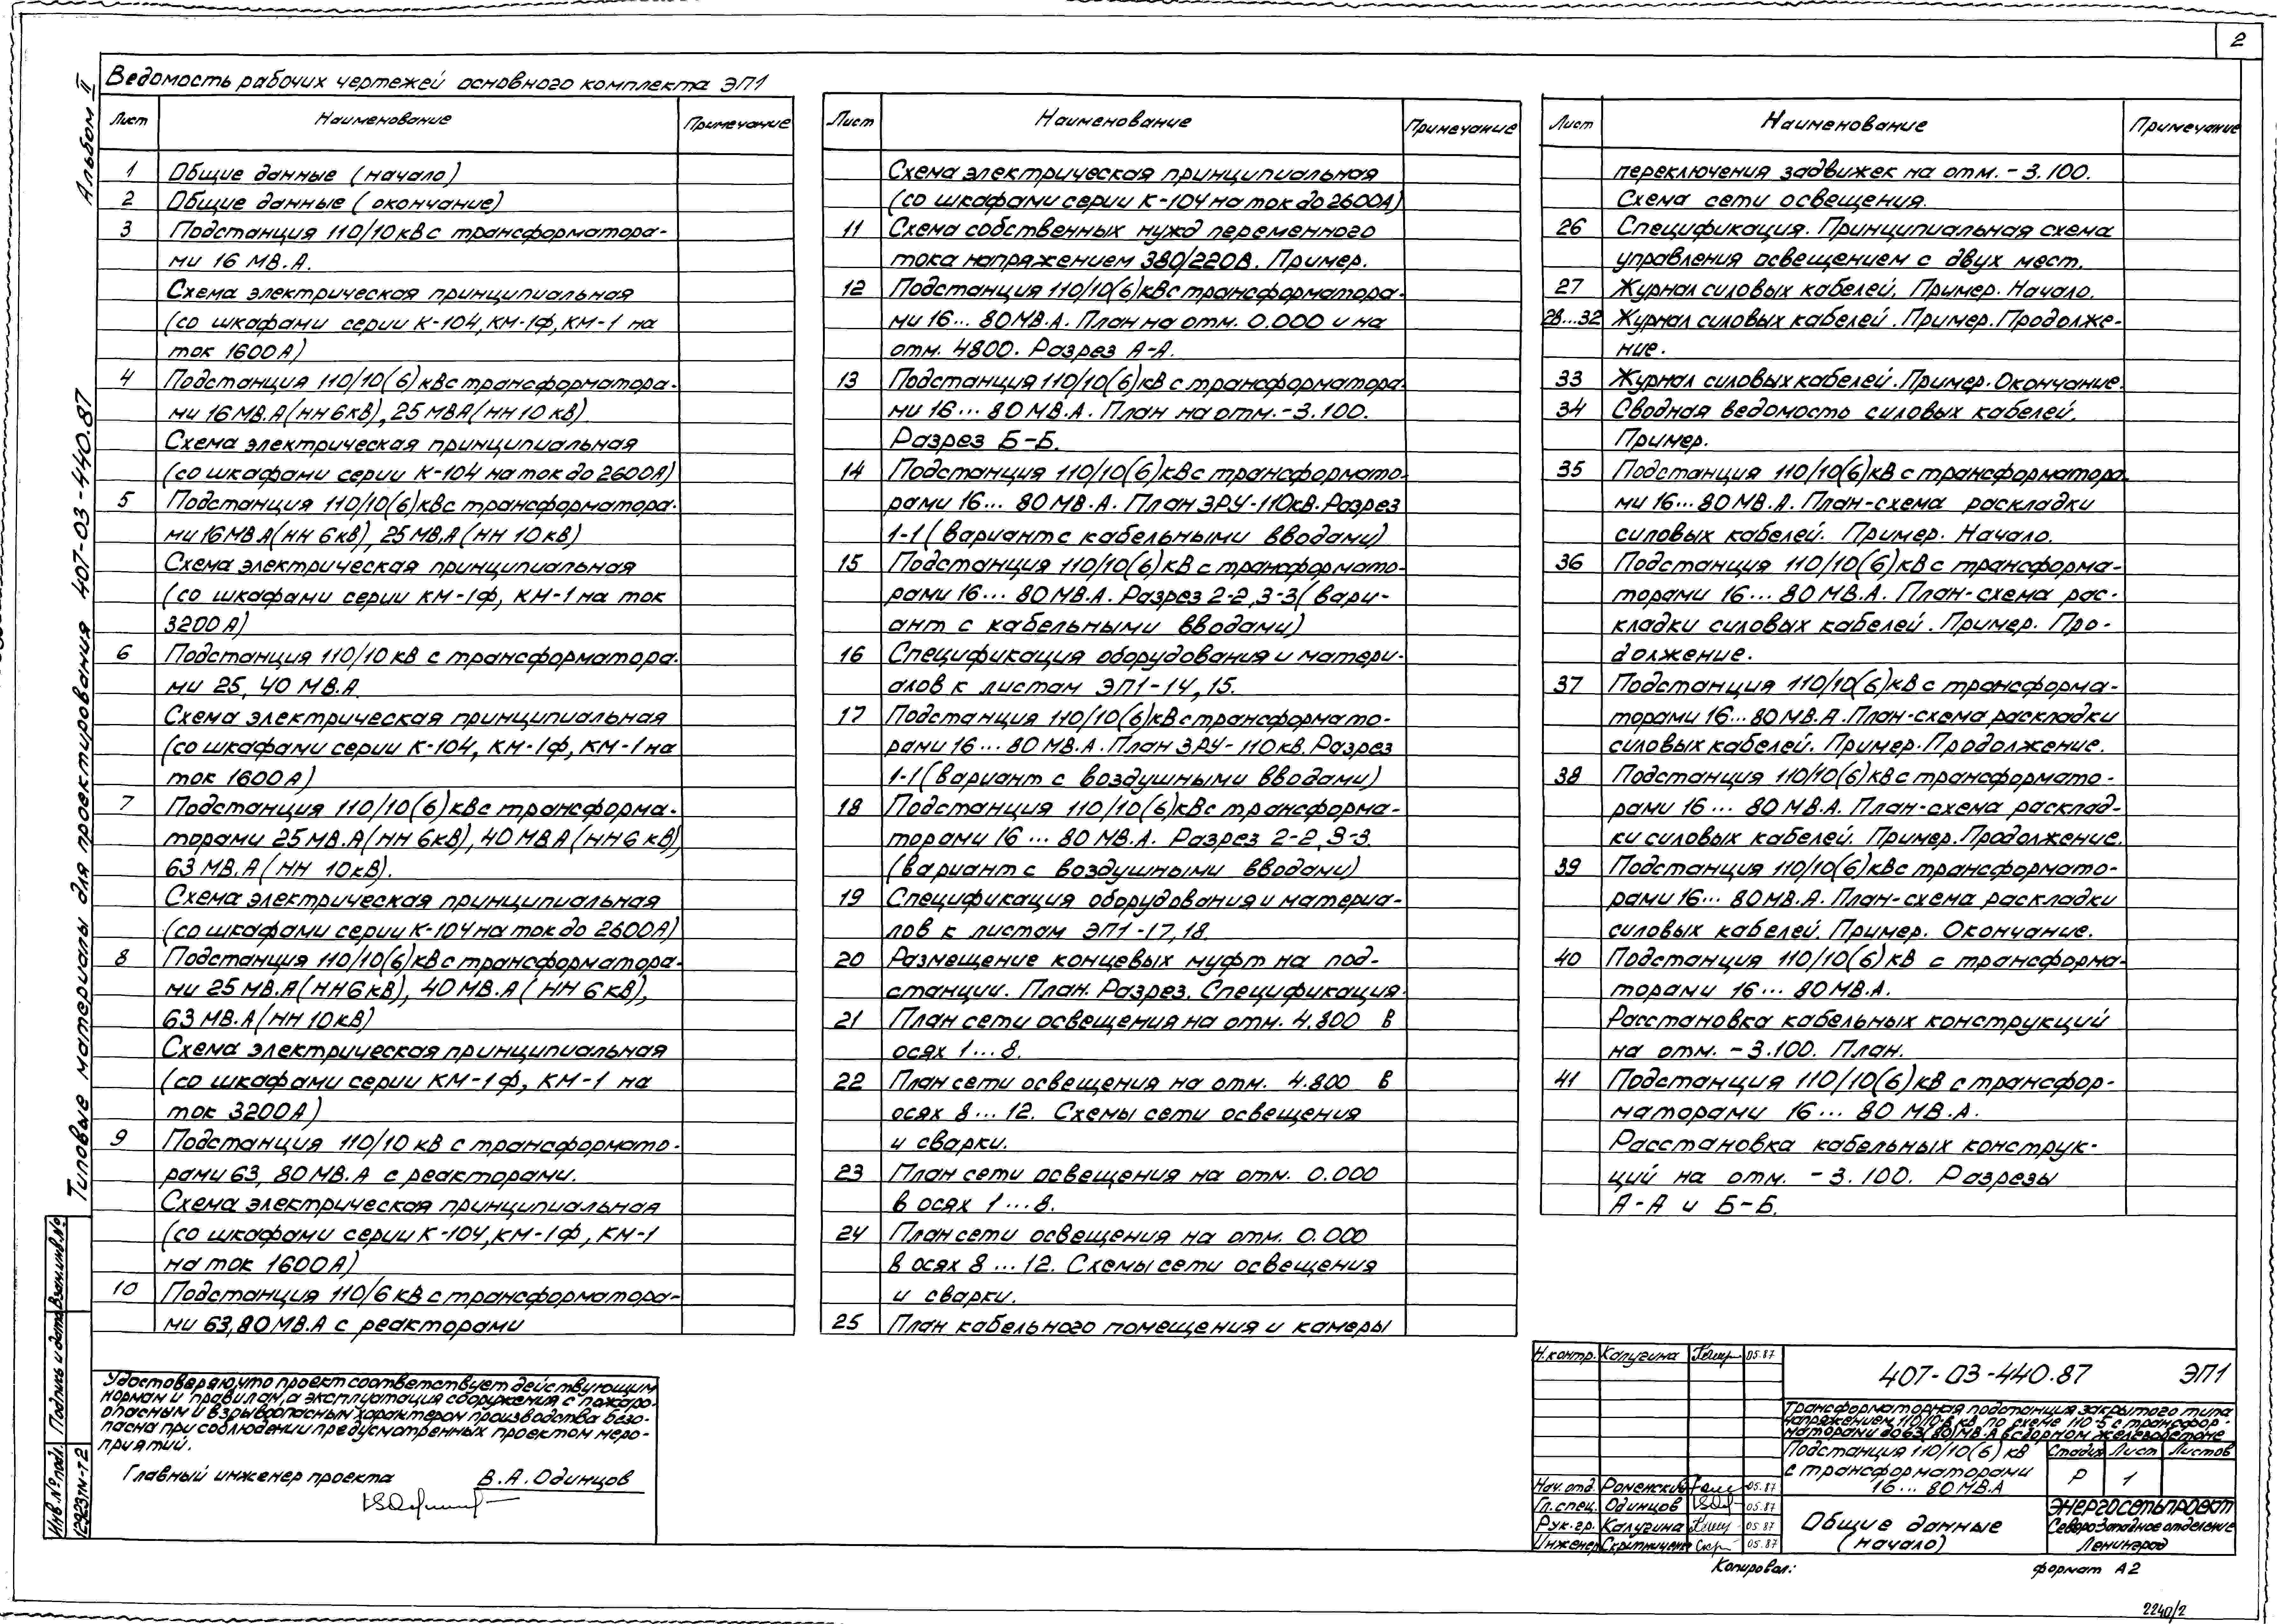 2
Альбом II
Типовые материалы для проектирования 407-03-440.87
Ведомость рабочих чертежей основного комплекта ЭП1
Лист Наименование Примечание
1 Общие данные (начало)
2 Общие данные (окончание)
3 Подстанция 110/10 кВ с трансформатора-
ми 16 МВ.А.
Схема электрическая принципиальная
(со шкафами серии К-104, КМ-1Ф, КМ-1 на
ток 1600А)
4 Подстанция 110/10(6) кВ с трансформатора-
ми 16 МВ.А (НН 6 кВ), 25 МВА (НН 10 кВ)
Схема электрическая принципиальная
(со шкафами серии К-104 на ток до 2600А)
5 Подстанция 110/10(6) кВ с трансформатора-
ми 16 МВ.А (НН 6 кВ), 25 МВ.А (НН 10 кВ)
Схема электрическая принципиальная
(со шкафами серии КМ-1Ф, КМ-1 на ток
3200 А)
6 Подстанция 110/10 кВ с трансформатора-
ми 25, 40 МВ.А.
Схема электрическая принципиальная
(со шкафами серии К-104, КМ-1Ф, КМ-1 на
ток 1600 А)
7 Подстанция 110/10(6) кВ с трансформа-
торами 25 МВ.А (НН 6 кВ), 40 МВ А (НН 6 кВ),
63 МВ.А (НН 10 кВ).
Схема электрическая принципиальная
(со шкафами серии К-104 на ток до 2600А)
8 Подстанция 110/10(6) кВ с трансформатора-
ми 25 МВ.А (НН 6 кВ), 40 МВ.А (НН 6 кВ),
63 МВ.А (НН 10 кВ)
Схема электрическая принципиальная
(со шкафами серии КМ-1Ф, КМ-1 на
ток 3200А)
9 Подстанция 110/10 кВ с трансформато-
рами 63, 80 МВ.А с реакторами.
Схема электрическая принципиальная
(со шкафами серии К-104, КМ-1Ф, КМ-1
на ток 1600А)
10 Подстанция 110/6 кВ с трансформатора-
ми 63, 80 МВ.А с реакторами
Лист Наименование Примечание
Схема электрическая принципиальная
(со шкафами серии К-104 на ток до 2600А)
11 Схема собственных нужд переменного
тока напряжением 380/220В. Пример.
12 Подстанция 110/10(6) кВ с трансформатора-
ми 16... 80 МВ.А. План на отм. 0.000 и на
отм. 4800. Разрез А-А.
13 Подстанция 110/10(6) кВ с трансформатора-
ми 16... 80 МВ.А. План на отм. -3.100.
Разрез Б-Б.
14 Подстанция 110/10(6) кВ с трансформато-
рами 16... 80 МВ.А. План ЗРУ-110кВ. Разрез
1-1 (вариант с кабельными вводами)
15 Подстанция 110/10(6) кВ с трансформато-
рами 16... 80 МВ.А. Разрез 2-2, 3-3 (вари-
ант с кабельными вводами)
16 Спецификация оборудования и матери-
алов к листам ЭП1-14, 15.
17 Подстанция 110/10(6) кВ с трансформато-
рами 16... 80 МВ.А. План ЗРУ-110 кВ. Разрез
1-1 (вариант с воздушными вводами)
18 Подстанция 110/10(6) кВ с трансформа-
торами 16... 80 МВ.А. Разрез 2-2, 3-3.
(вариант с воздушными вводами)
19 Спецификация оборудования и материа-
лов к листам ЭП1-17, 18.
20 Размещение концевых муфт на под-
станции. План. Разрез. Спецификация.
21 План сети освещения на отм. 4.800 в
осях 1...8.
22 План сети освещения на отм. 4.800 в
осях 8...12. Схемы сети освещения
и сварки.
23 План сети освещения на отм. 0.000
в осях 1...8.
24 План сети освещения на отм. 0.000
в осях 8...12. Схемы сети освещения
и сварки.
25 План кабельного помещения и камеры
Лист Наименование Примечание
переключения задвижек на отм. -3.100.
Схема сети освещения.
26 Спецификация. Принципиальная схема
управления освещением с двух мест.
27 Журнал силовых кабелей. Пример. Начало.
28...32 Журнал силовых кабелей. Пример. Продолже-
ние.
33 Журнал силовых кабелей. Пример. Окончание.
34 Сводная ведомость силовых кабелей.
Пример.
35 Подстанция 110/10(6) кВ с трансформатора-
ми 16... 80 МВ.А. План-схема раскладки
силовых кабелей. Пример. Начало.
36 Подстанция 110/10(6) кВ с трансформа-
торами 16... 80 МВ.А. План-схема рас-
кладки силовых кабелей. Пример. Про-
должение.
37 Подстанция 110/10(6) кВ с трансформа-
торами 16... 80 МВ.А. План-схема раскладки
силовых кабелей. Пример. Продолжение.
38 Подстанция 110/10(6) кВ с трансформато-
рами 16... 80 МВ.А. План-схема расклад-
ки силовых кабелей. Пример. Продолжение.
39 Подстанция 110/10(6) кВ с трансформато-
рами 16... 80 МВ.А. План-схема раскладки
силовых кабелей. Пример. Окончание.
40 Подстанция 110/10(6) кВ с трансформа-
торами 16... 80 МВ.А.
Расстановка кабельных конструкций
на отм. -3.100. План.
41 Подстанция 110/10(6) кВ с трансфор-
маторами 16... 80 МВ.А.
Расстановка кабельных конструк-
ций на отм. -3.100. Разрезы
А-А и Б-Б.
Удостоверяю, что проект соответствует действующим
нормам и правилам, а эксплуатация сооружения с пожаро-
опасным и взрывоопасным характером производства безо-
пасна при соблюдении предусмотренных проектом меро-
приятий.
Главный инженер проекта В.А. Одинцов
Инв. № подл. Подпись и дата Взам.инв.№
12923тм-т2
Н.контр. Калугина 05.87
Нач.отд. Роменский 05.87
Гл.спец. Одинцов 05.87
Рук.гр. Калугина 05.87
Инженер 05.87
407-03-440.87 ЭП1
Трансформаторная подстанция закрытого типа
напряжением 110/10-6 кВ по схеме 110-5 с трансфор-
маторами до 63(80) МВ.А в сборном железобетоне
Подстанция 110/10(6) кВ
с трансформаторами
16... 80 МВ.А
Стадия Лист Листов
Р 1
Общие данные
(начало)
ЭНЕРГОСЕТЬПРОЕКТ
Северо-Западное отделение
Ленинград
Копировал: формат А2
2240/2